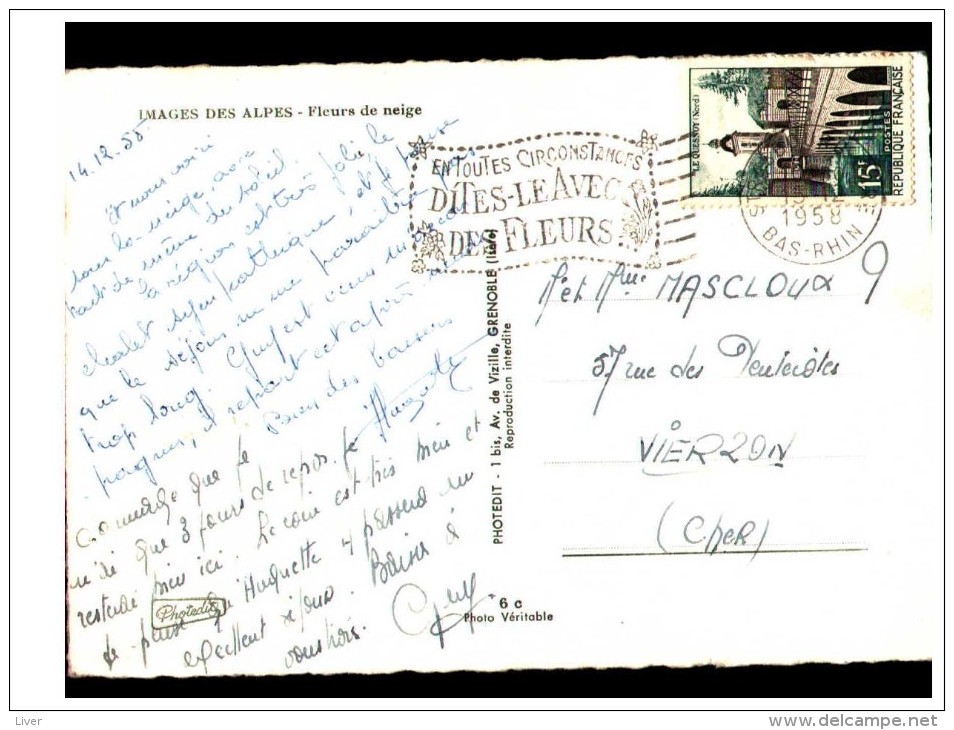 IMAGES DES ALPES - Fleurs de neige
14.12.58
Nous voici
sous la neige, avec
tout de même du soleil.
La région est très jolie, le
chalet sympathique, et je pense
que le séjour ne me paraîtra pas
trop long. Guy est venu m'
et repart cet après
Bien des baisers
Huguette
dommage que je
n'ai que 3 jours de repos. Je
resterai bien ici. Le coin est très bien et
je pense qu'Huguette y passera un
excellent séjour. Baisers à
vous trois.
Guy
Photedit
EN TOUTES CIRCONSTANCES
DITES-LE AVEC
DES FLEURS
1958
BAS-RHIN
LE QUESNOY (Nord)
15F
POSTES
REPUBLIQUE FRANÇAISE
M et Mme MASCLOUX
57 rue des
VIERZON
(CHER)
PHOTEDIT - 1 bis, Av. de Vizille, GRENOBLE (Isère)
Reproduction interdite
6 c
Photo Véritable
Liver
delcampe.net